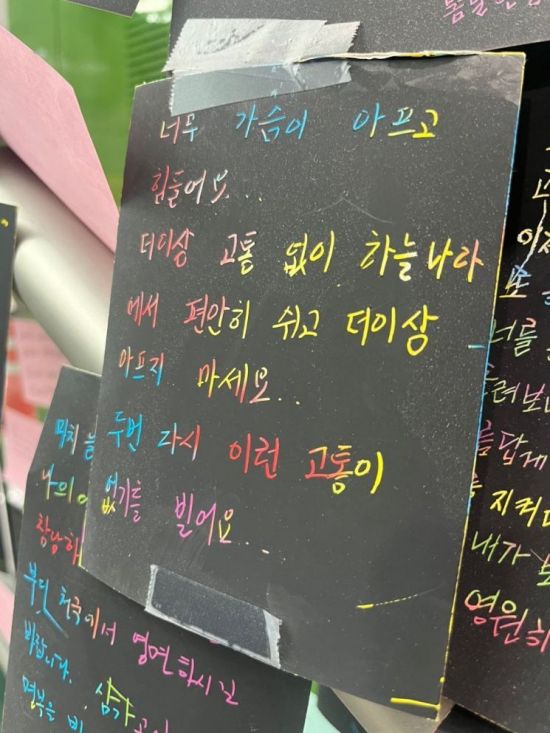 너무 가슴이 아프고
힘들어요...
더이상 고통 없이 하늘나라
에서 편안히 쉬고 더이상
아프지 마세요..
두번 다시 이런 고통이
없기를 빌어요...
나의
부디 천국에서 영면하시길
바랍니다. 삼가
명복을 빕
이제
또
너를
름답게
지켜
내가 보
영원히